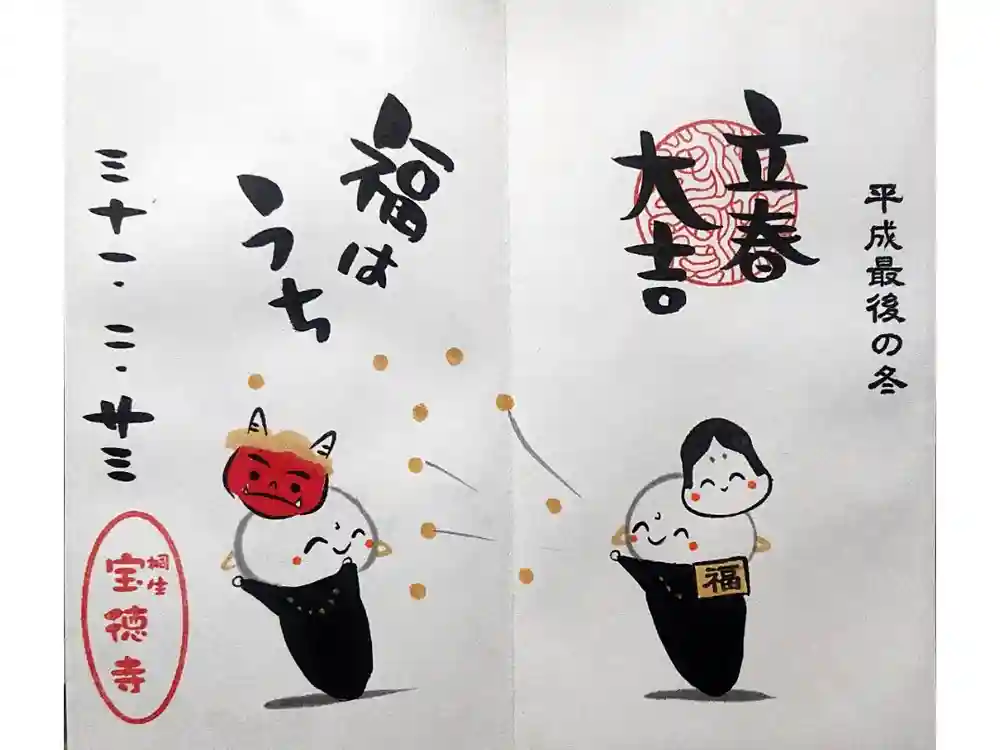 平成最後の冬
立春
大吉
福
福は
うち
三十一・二・廿三
桐生
宝徳寺